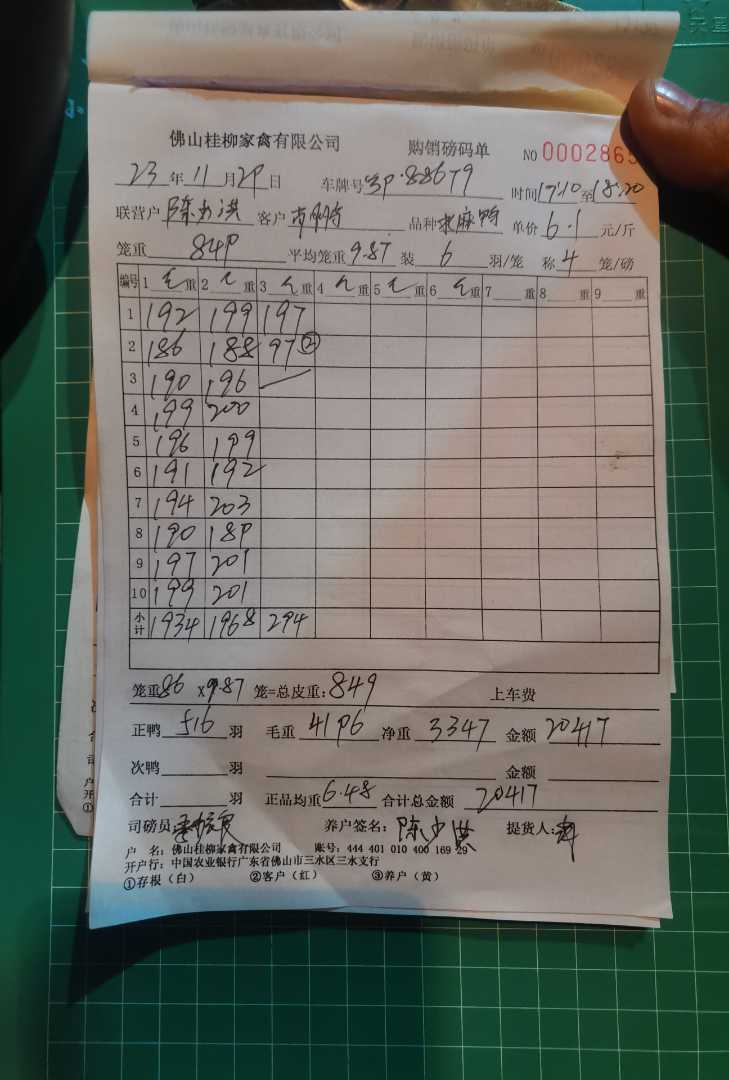 佛山桂柳家禽有限公司 购销磅码单 NO 0002865
23 年 11 月 29 日 车牌号 88679 时间 17:10 至 18:20
联营户 陈少洪 客户 品种 麻鸭 单价 6.1 元/斤
笼重 849 平均笼重 9.87 装 6 羽/笼 称 4 笼/磅
编号 1 毛 重 2 重 3 重 4 重 5 重 6 重 7 重 8 重 9 重
1 192 199 197
2 186 188 97 ②
3 190 196
4 199 200
5 196 199
6 191 192
7 194 203
8 190 189
9 197 201
10 199 201
小计 1934 1968 294
笼重 86 x9.87 笼=总皮重: 849 上车费
正鸭 516 羽 毛重 4196 净重 3347 金额 20417
次鸭 羽 金额
合计 羽 正品均重 6.48 合计总金额 20417
司磅员 养户签名: 陈少洪 提货人:
户 名: 佛山桂柳家禽有限公司 账号: 444 401 010 400 169 29
开户行: 中国农业银行广东省佛山市三水区三水支行
①存根(白) ②客户(红) ③养户(黄)